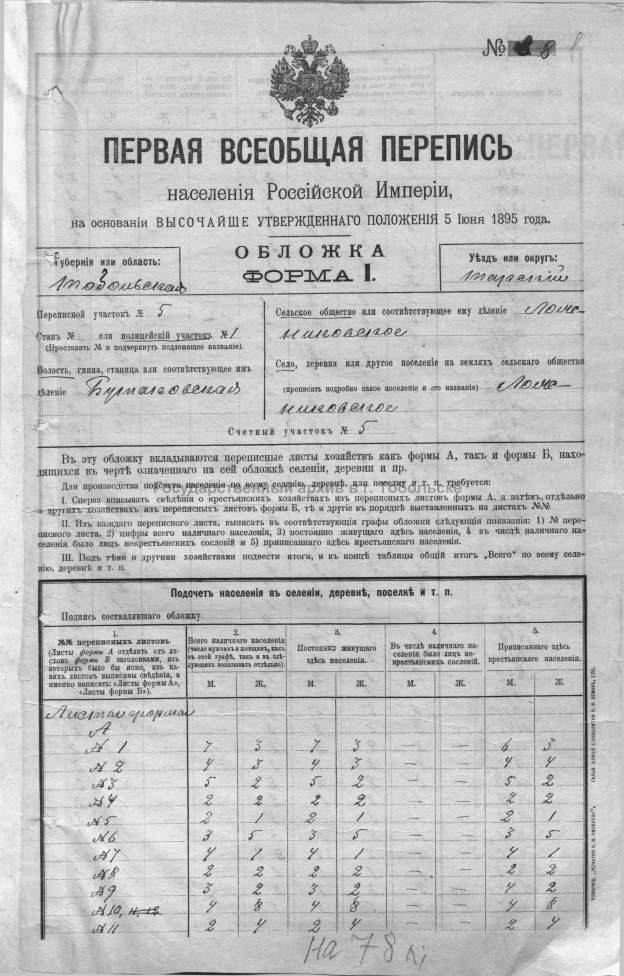 № 8 8
ПЕРВАЯ ВСЕОБЩАЯ ПЕРЕПИСЬ
населенія Россійской Имперіи,
на основаніи ВЫСОЧАЙШЕ УТВЕРЖДЕННАГО ПОЛОЖЕНІЯ 5 Іюня 1895 года.
Губернія или область:
Тобольская
ОБЛОЖКА
ФОРМА I.
Уѣздъ или округъ:
Тарскій
Переписной участокъ № 5
Станъ № или полицейскій участокъ № 1
(Проставить № и подчеркнуть подлежащее названіе).
Волость, гмина, станица или соотвѣтствующее имъ
дѣленіе Бутаковская
Сельское общество или соотвѣтствующее ему дѣленіе Логи-
новское
Село, деревня или другое поселеніе на земляхъ сельскаго общества
(прописать подробно какое поселеніе и его названіе) Логи-
новское
Счетный участокъ № 5
Въ эту обложку вкладываются переписные листы хозяйствъ какъ формы А, такъ и формы Б, нахо-
дящихся въ чертѣ означеннаго на сей обложкѣ селенія, деревни и пр.
Для производства подсчета населенія по всему селенію, деревнѣ, или поселку и т. п., требуется:
Государственный архив в г. Тобольске
I. Сперва вписывать свѣдѣнія о крестьянскихъ хозяйствахъ изъ переписныхъ листовъ формы А, а затѣмъ, отдѣльно
о другихъ хозяйствахъ изъ переписныхъ листовъ формы Б, тѣ и другіе въ порядкѣ выставленныхъ на листахъ №№
II. Изъ каждаго переписного листа, выписать въ соотвѣтствующія графы обложки слѣдующія показанія: 1) № пере-
писного листа, 2) цифры всего наличнаго населенія, 3) постоянно живущаго здѣсь населенія, 4 въ числѣ наличнаго на-
селенія было лицъ некрестьянскихъ сословій и 5) приписаннаго здѣсь крестьянскаго населенія.
III. Подъ тѣми и другими хозяйствами подвести итоги, и въ концѣ таблицы общій итогъ „Всего“ по всему селе-
нію, деревнѣ и т. п.
Подсчетъ населенія въ селеніи, деревнѣ, поселкѣ и т. п.
Подпись составлявшаго обложку
1.
№№ переписныхъ листовъ.
(Листы формы А отдѣлить отъ ли-
стовъ формы Б заголовками, изъ
которыхъ было бы ясно, изъ ка-
кихъ листовъ выписаны свѣдѣнія, а
именно написать: «Листы формы А»,
«Листы формы Б»).
2.
Всего наличнаго населенія
(число мужчинъ и женщинъ, какъ
въ этой графѣ, такъ и въ слѣ-
дующихъ показывать отдѣльно).
3.
Постоянно живущаго
здѣсь населенія.
4.
Въ числѣ наличнаго на-
селенія было лицъ не-
крестьянскихъ сословій.
5.
Приписаннаго здѣсь
крестьянскаго населенія.
М. Ж. М. Ж. М. Ж. М. Ж.
Листы формы
А
№ 1 7 3 7 3 — — 6 3
№ 2 4 3 4 3 — — 4 4
№ 3 5 2 5 2 — — 5 2
№ 4 2 2 2 2 — — 2 2
№ 5 2 1 2 1 — — 2 1
№ 6 3 5 3 5 — — 3 5
№ 7 4 1 4 1 — — 4 1
№ 8 2 2 2 2 — — 2 2
№ 9 3 2 3 2 — — 4 2
№ 10, 11, 12 4 8 4 8 — — 4 8
№ 11 2 4 2 4 — — 2 4
На 78